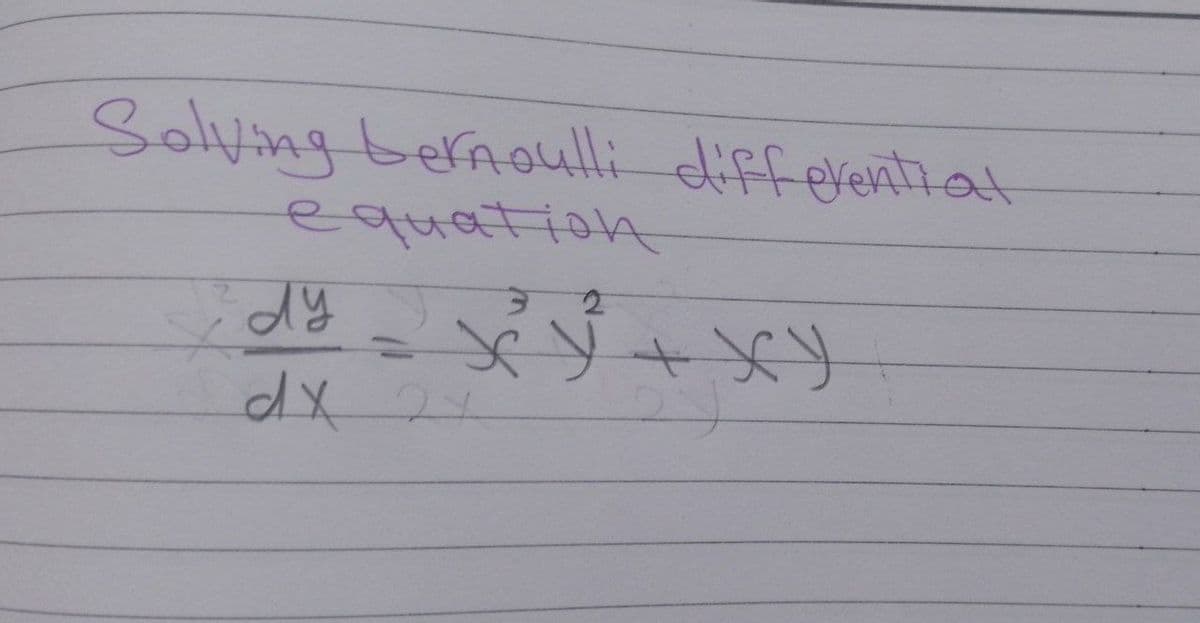 Solving bernoulli differential
equation
dy/dx = x³y² + xy